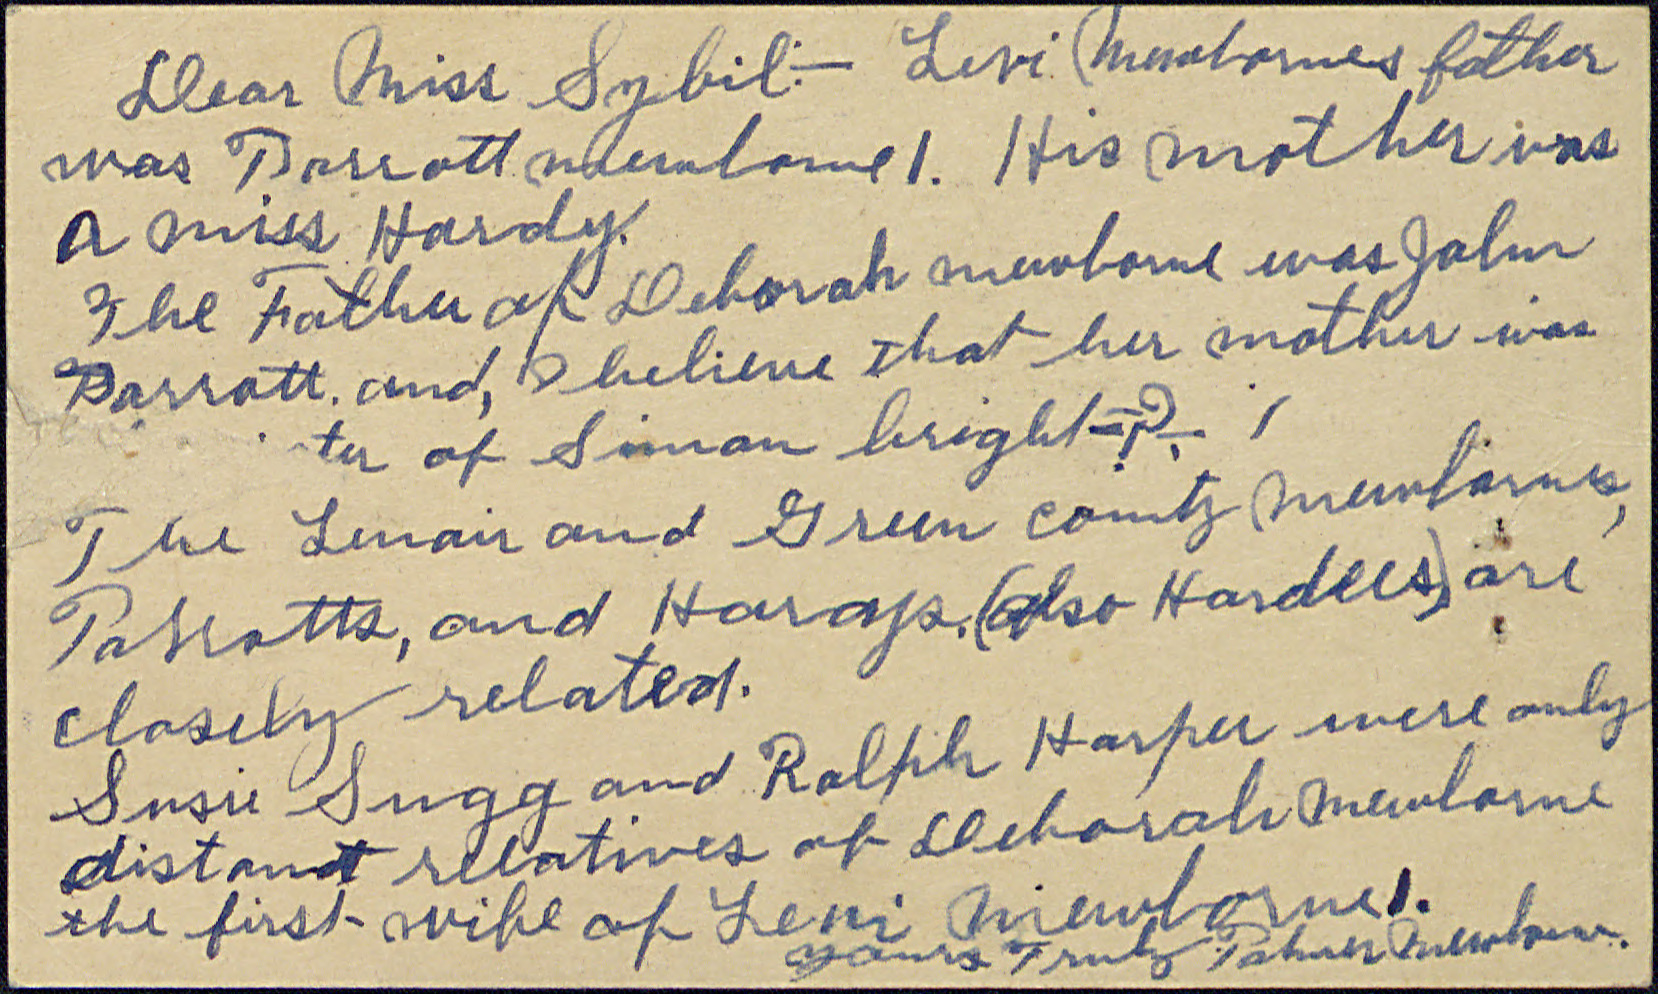 Dear Miss Sybil:— Levi Mewbornes father
was Parrott mewborne 1. His mother was
a miss Hardy.
The Father of Deborah mewborne was John
Parrott. and, I believe that her mother was
ter of Simon bright =?.
The Lenair and Green county Mewbornes,
Parrotts, and Hardys. (also Hardees) are
closely related.
Susie Sugg and Ralph Harper were only
distant relatives of Deborah Mewborne
the first wife of Levi Mewborne 1.
yours Truly Mewborn.